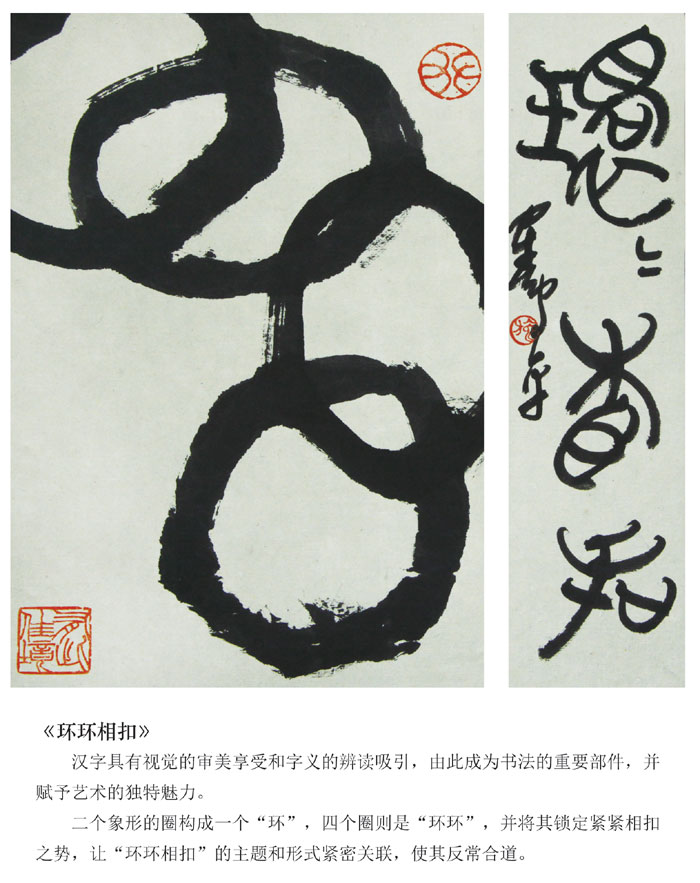 環二相扣
《环环相扣》
汉字具有视觉的审美享受和字义的辨读吸引，由此成为书法的重要部件，并
赋予艺术的独特魅力。
二个象形的圈构成一个“环”，四个圈则是“环环”，并将其锁定紧紧相扣
之势，让“环环相扣”的主题和形式紧密关联，使其反常合道。